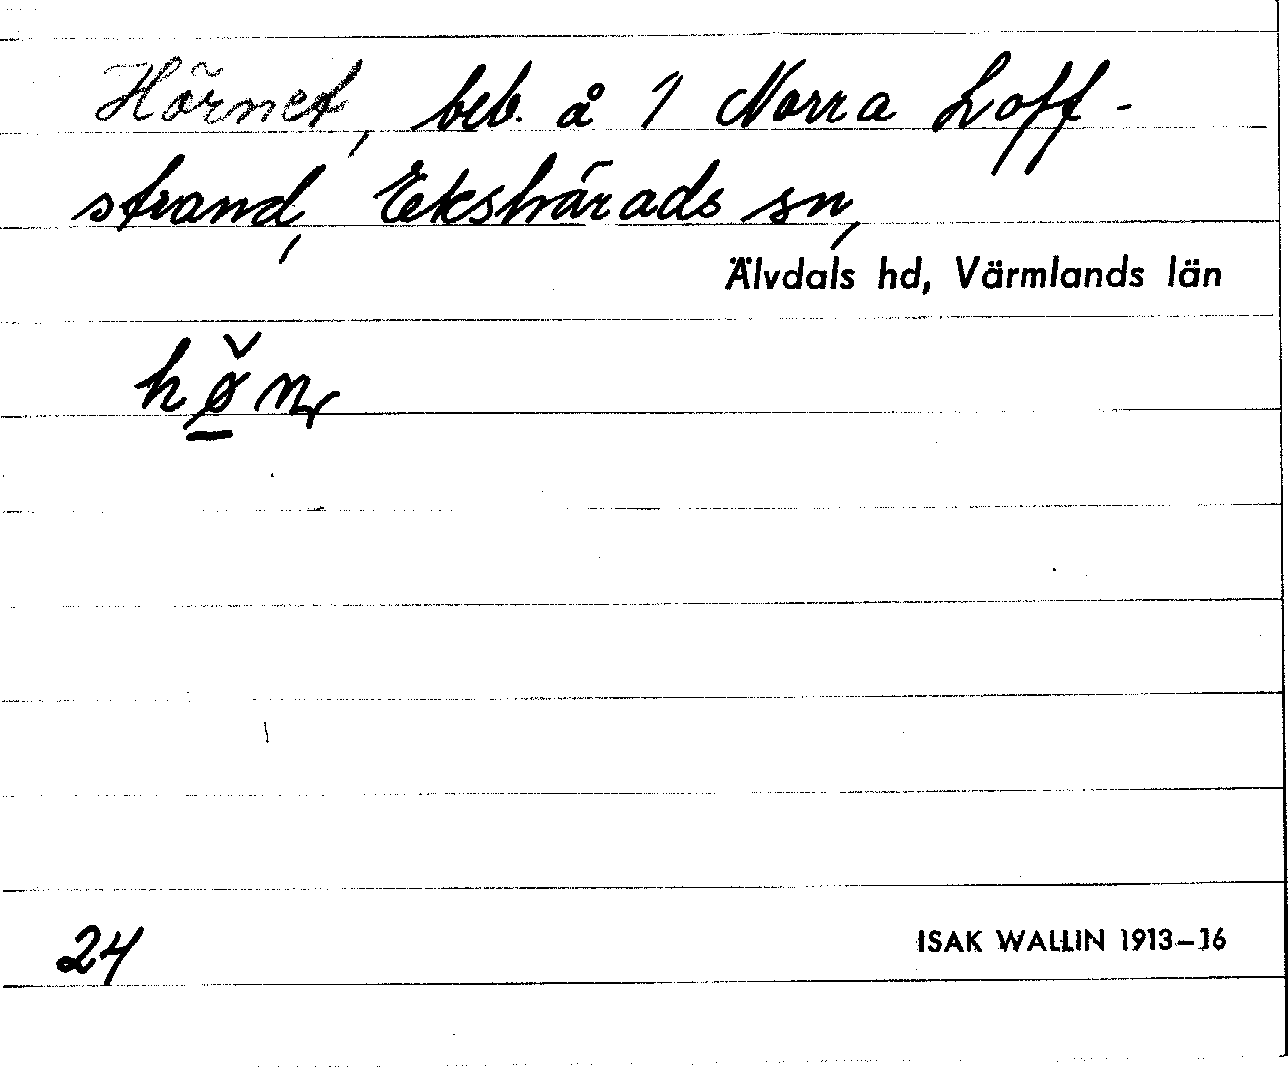 Hörnet, beb. å 1 Norra Loff-
strand, Ekshärads sn,
Älvdals hd, Värmlands län
24
ISAK WALLIN 1913–16